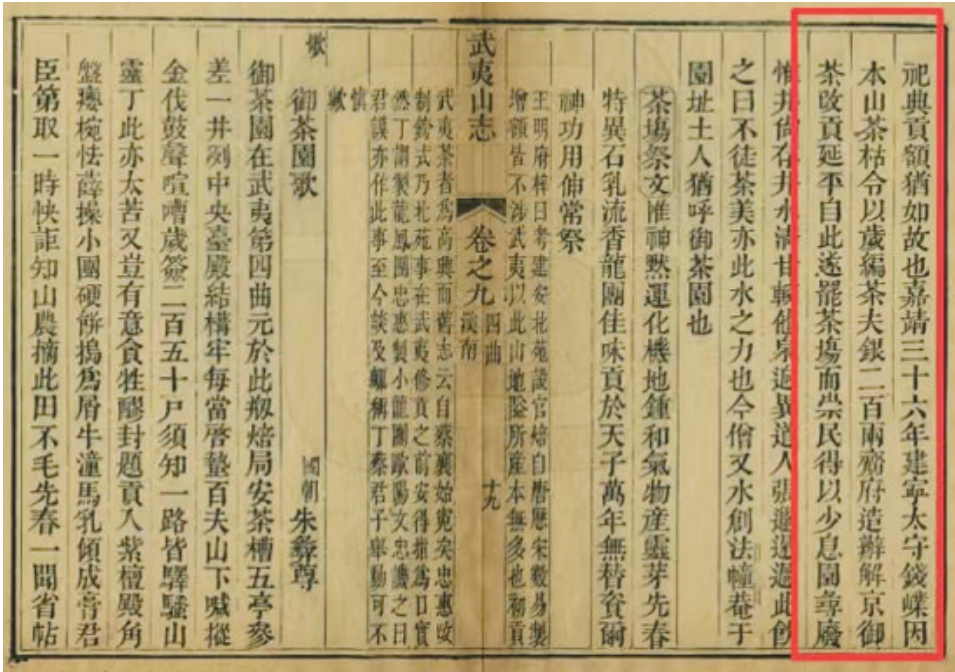 祀典貢額猶如故也嘉靖三十六年建寧太守錢嶫因
本山茶枯令以歲編茶夫銀二百兩齎府造辦解京御
茶改貢延平自此遂罷茶塲而崇民得以少息園尋廢
惟井尚存井水清甘較他泉迥異道人張邋遢過此飲
之曰不徒茶美亦此水之力也今僧又水創法幢菴于
園址土人猶呼御茶園也
茶塲祭文惟神黙運化機地鍾和氣物産靈芽先春
特異石乳流香龍團佳味貢於天子萬年無替資爾
神功用伸常祭
王明府梓曰考建安北苑議官焙自唐歷宋數易製
增額皆不涉武夷以此山地隘所産本無多也初貢
武夷山志 卷之九 四曲 溪南 十九
武夷茶者爲高興而舊志云自蔡襄始寃矣忠惠改
制鈐式乃北苑事在武夷修貢之前安得指爲口實
然丁謂製龍鳳團忠惠製小龍團歐陽文忠譏之曰
君謨亦作此事至今談及輒稱丁蔡君子舉動可不
慎
歟
歟
御茶園歌 國朝 朱彝尊
御茶園在武夷第四曲元於此剏焙局安茶槽五亭參
差一井洌中央臺殿結構牢每當啓蟄百夫山下喊摐
金伐鼓聲喧嘈歲簽二百五十戸須知一路皆驛騷山
靈丁此亦太苦又豈有意貪牲醪封題貢入紫檀殿角
盤癭椀怯薛操小團硬餅擣爲屑牛湩馬乳傾成膏君
臣第取一時快詎知山農摘此田不毛先春一聞省帖